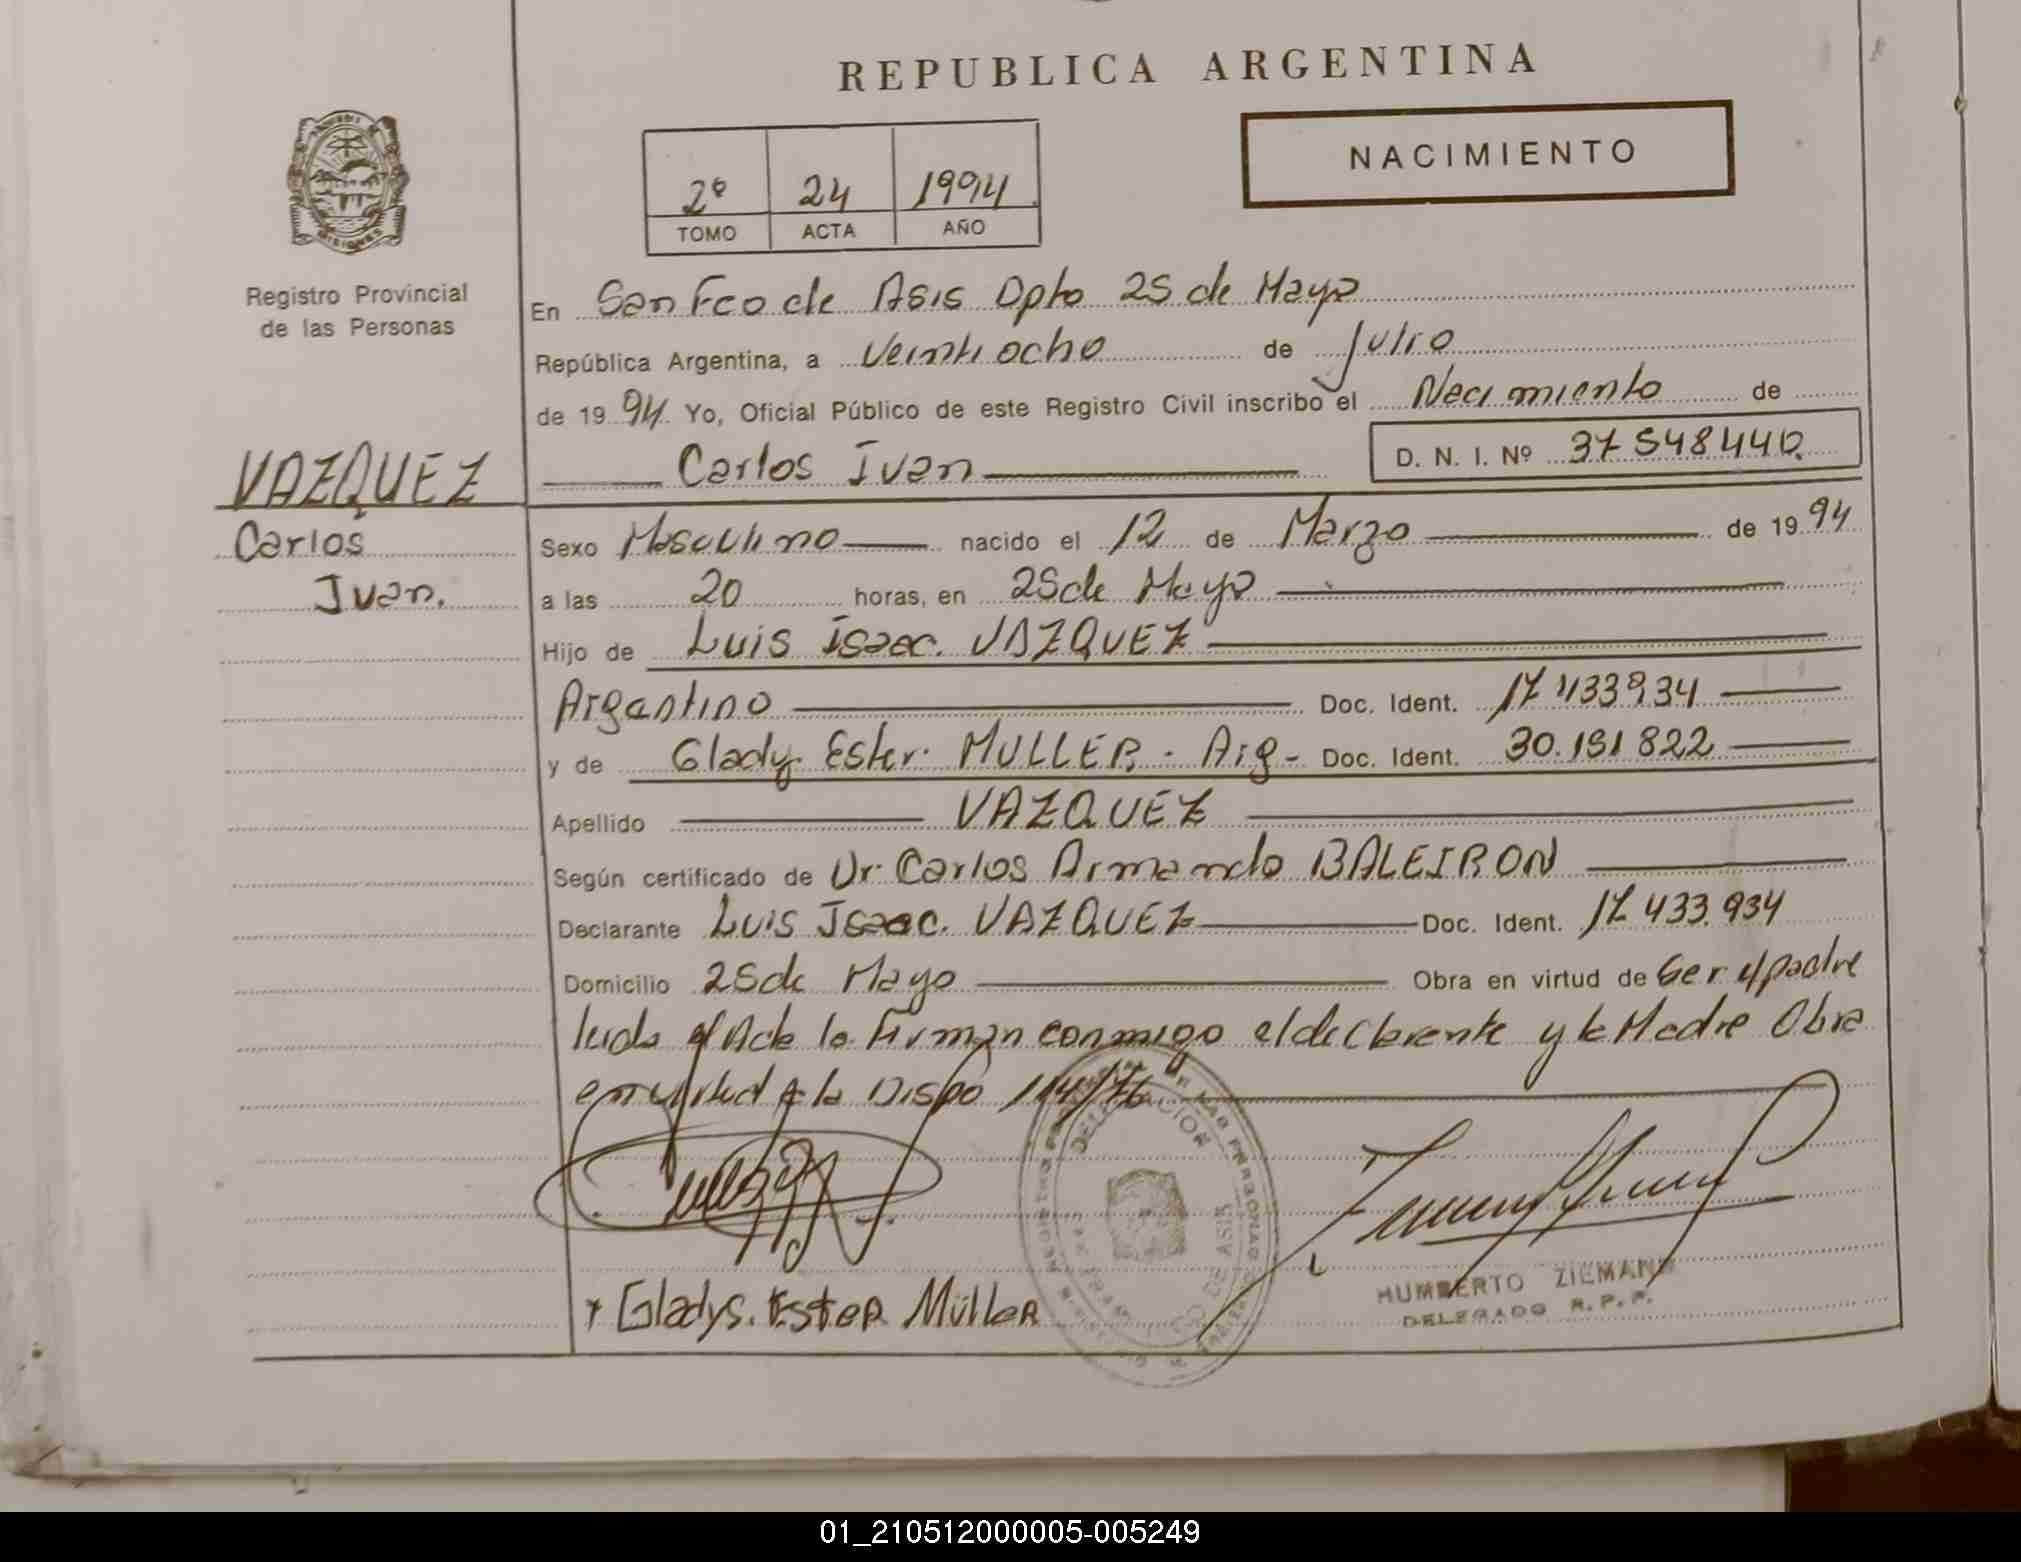 REPUBLICA ARGENTINA
NACIMIENTO
2º 24 1994
TOMO ACTA AÑO
MISIONES
Registro Provincial
de las Personas
En San Fco de Asis Dpto 25 de Mayo
República Argentina, a Veintiocho de Julio
de 1994 Yo, Oficial Público de este Registro Civil inscribo el Nacimiento de
Carlos Ivan D. N. I. Nº 37548440
VAZQUEZ
Carlos
Ivan.
Sexo Masculino nacido el 12 de Marzo de 1994
a las 20 horas, en 25 de Mayo
Hijo de Luis Isaac. VAZQUEZ
Argentino Doc. Ident. 17433934
y de Glady Ester. MULLER - Arg - Doc. Ident. 30.191822
Apellido VAZQUEZ
Según certificado de Dr. Carlos Armando BALEIRON
Declarante Luis Isaac. VAZQUEZ Doc. Ident. 17 433.934
Domicilio 25 de Mayo Obra en virtud de Ser el padre
leida el Acta la Firman conmigo el declarante y la Madre Obra
en virtud a la Dispo 114/76
DELEGACION
DE ASIS
HUMBERTO ZIEMANN
DELEGADO R. P. P.
x Gladys. Ester Müller
01_210512000005-005249